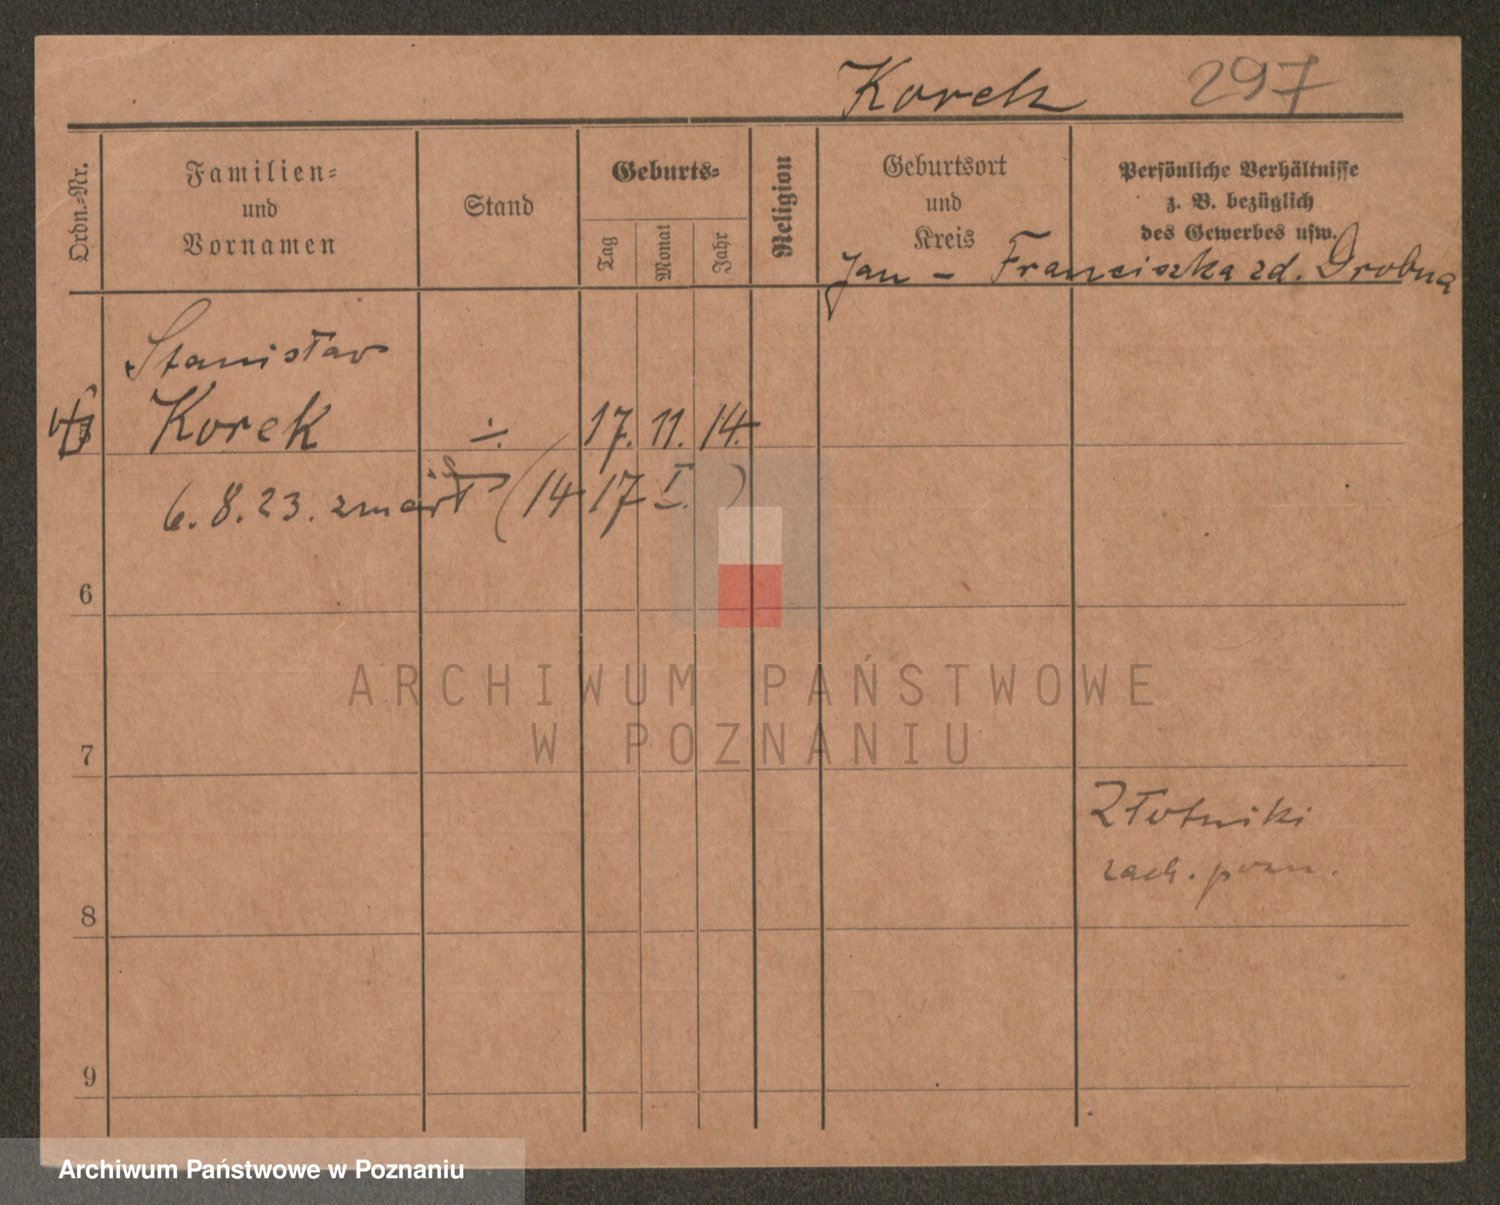 Korek 297
Ordn.-Nr.
Familien-
und
Vornamen
Stand
Geburts-
Tag
Monat
Jahr
Religion
Geburtsort
und
Kreis
Persönliche Verhältnisse
z. B. bezüglich
des Gewerbes usw.
Jan - Franciszka zd. Drobna
Stanisław
Korek ÷ 17. 11. 14.
6. 8. 23. zmarł (14 17 I. )
6
7
Złotniki
zach. pozn.
8
9
ARCHIWUM PAŃSTWOWE
W POZNANIU
Archiwum Państwowe w Poznaniu